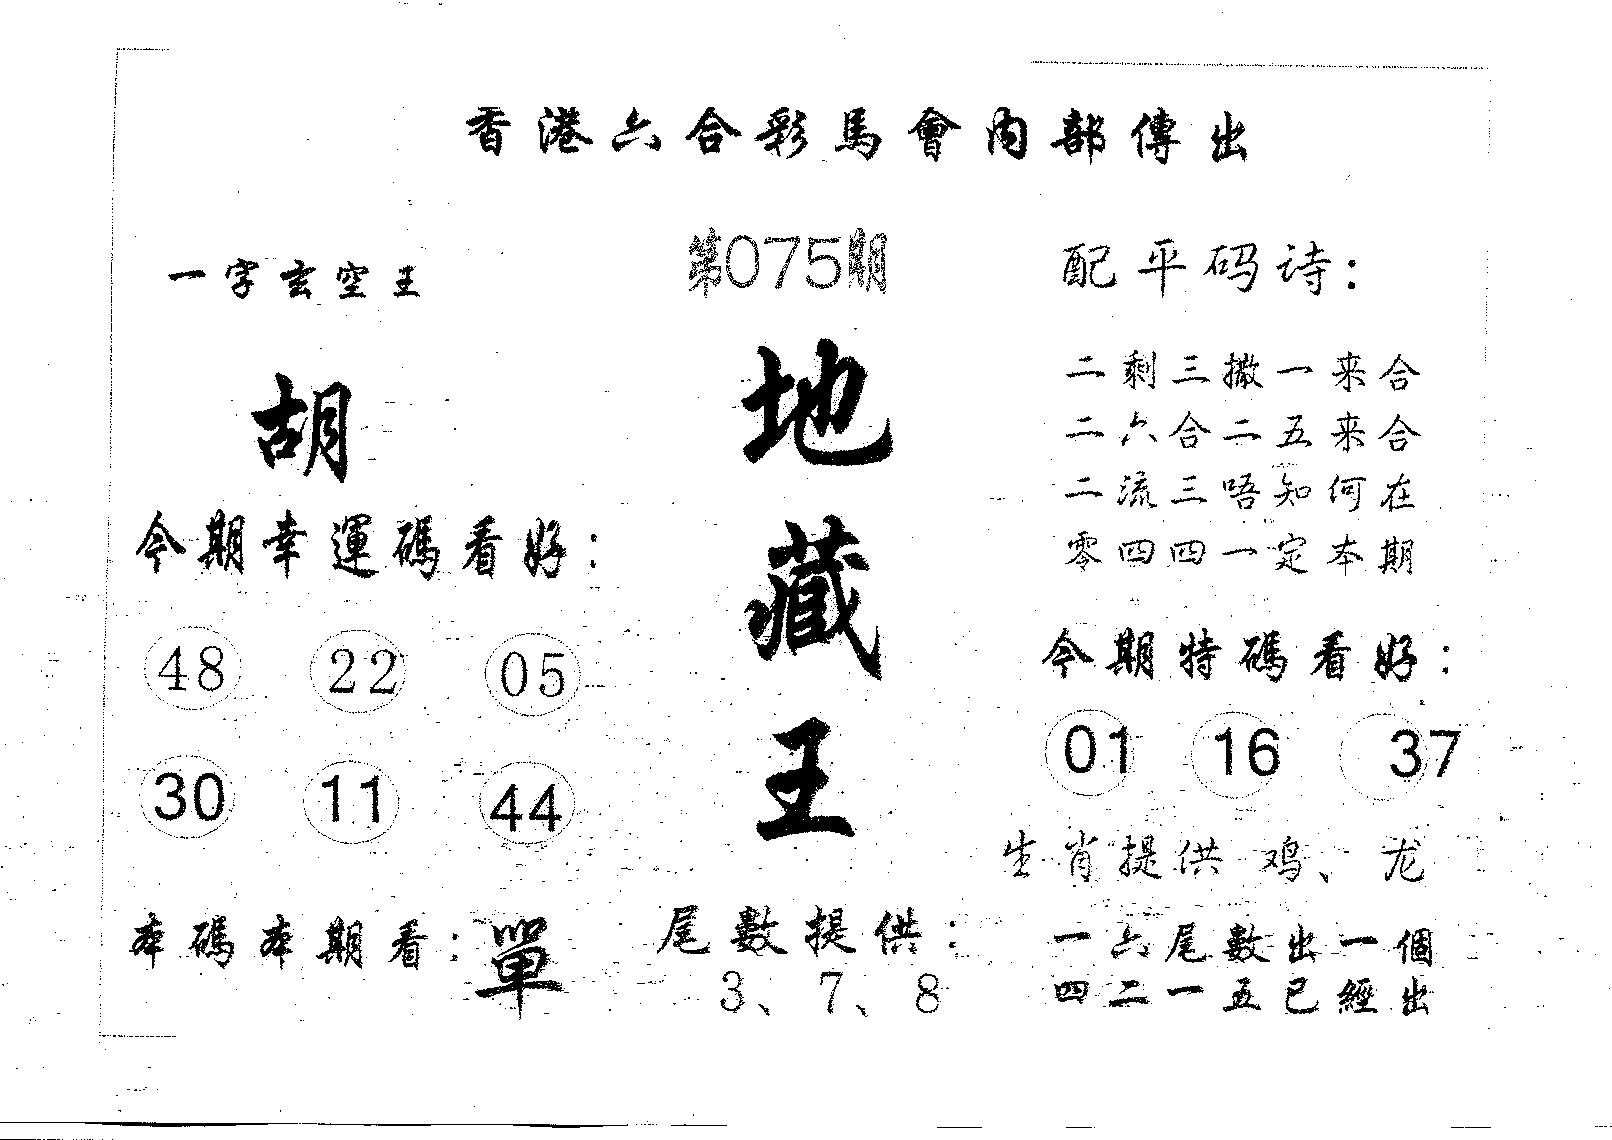 香港六合彩馬會內部傳出
第075期
一字玄空王
胡
今期幸運碼看好：
48 22 05
30 11 44
本碼本期看：單
地藏王
尾數提供：
3、7、8
配平码诗：
二剩三撒一来合
二六合二五来合
二流三唔知何在
零四四一定本期
今期特碼看好：
01 16 37
生肖提供 鸡、龙
一六尾數出一個
四二一五已經出